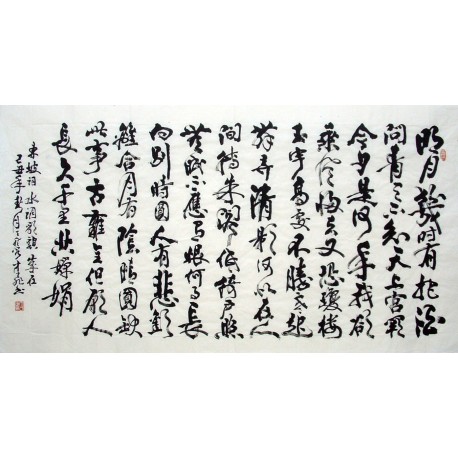 明月幾時有把酒
問青天不知天上宮闕
今夕是何年我欲
乘風歸去又恐瓊樓
玉宇高處不勝寒起
舞弄清影何似在人
間轉朱閣低綺戶照
無眠不應有恨何事長
向別時圓人有悲歡
離合月有陰晴圓缺
此事古難全但願人
長久千里共嬋娟
東坡詞水調歌頭
己丑年